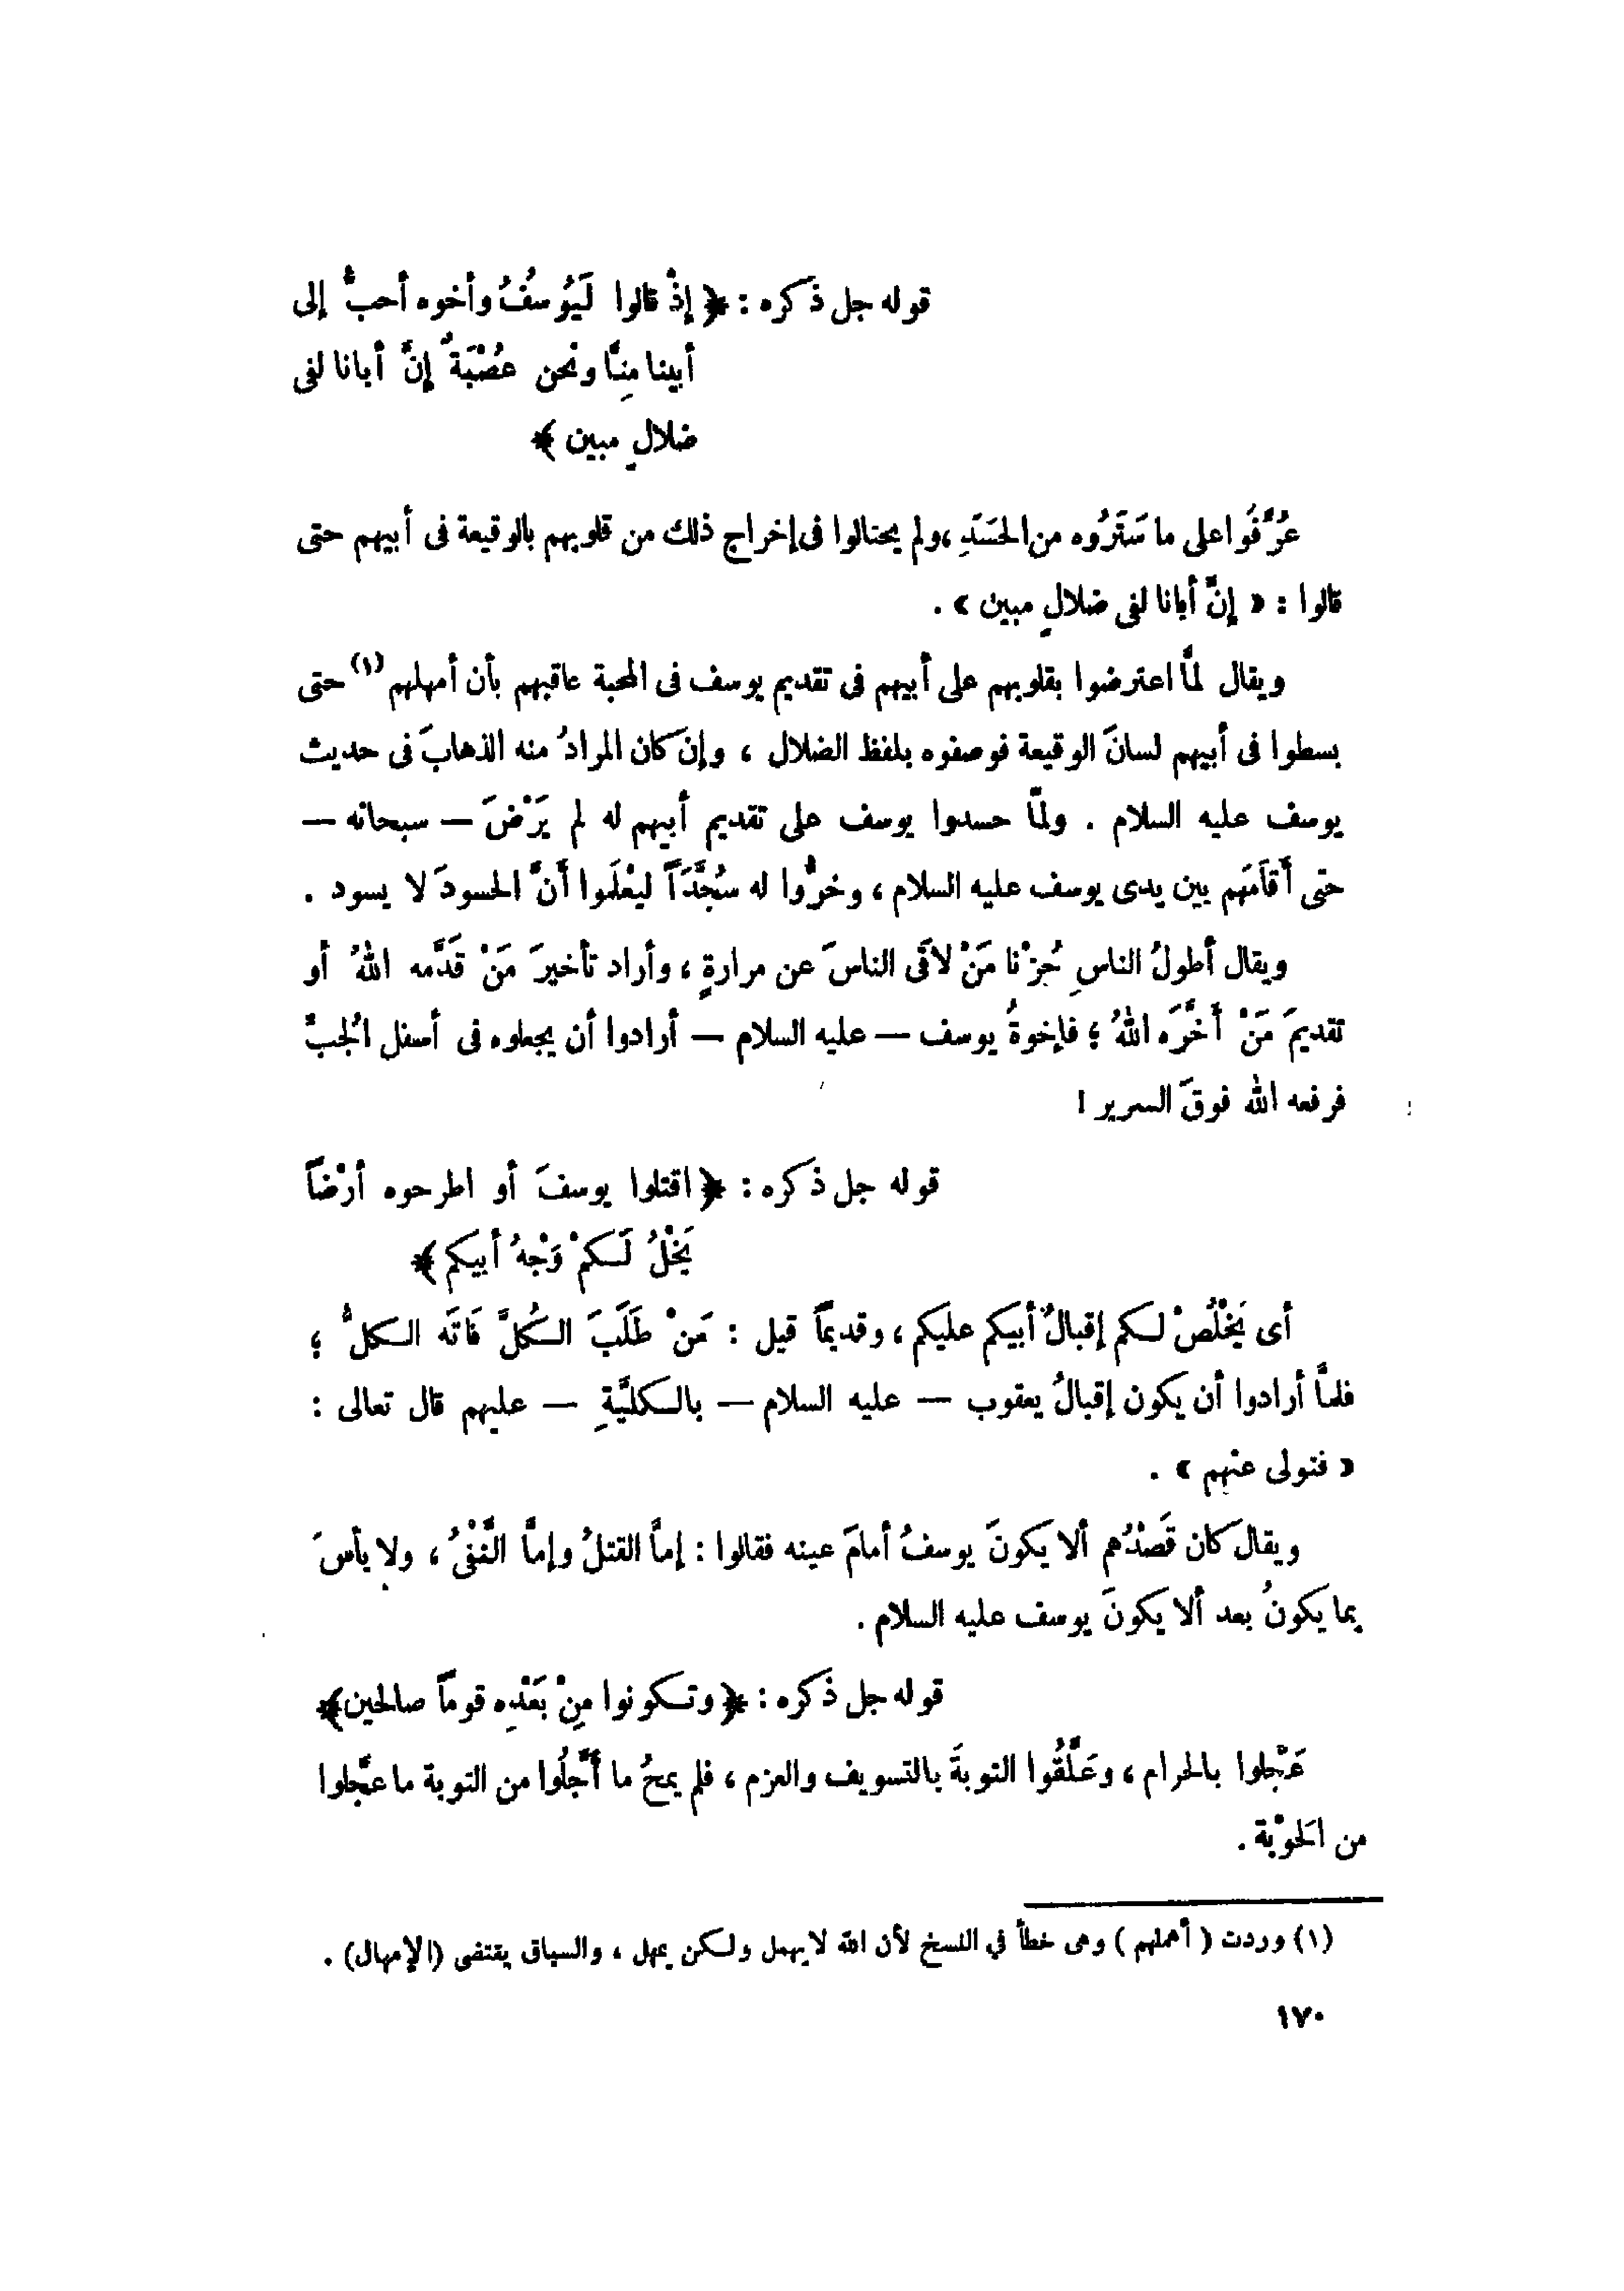 قوله جل ذكره : ﴿ إذْ قالوا لَيُوسُفُ وأخوه أحبُّ إلى
أبينا مِنَّا ونحن عُصْبَةٌ إنَّ أبانا لفى
ضلالٍ مبين ﴾
عُرِّفُوا على ما سَتَرُوه من الحَسَدِ ، ولم يحتالوا فى إخراج ذلك من قلوبهم بالوقيعة فى أبيهم حتى
قالوا : « إنَّ أبانا لفى ضلالٍ مبين » .
ويقال لمَّا اعترضوا بقلوبهم على أبيهم فى تقديم يوسف فى المحبة عاقبهم بأن أمهلهم (١) حتى
بسطوا فى أبيهم لسانَ الوقيعة فوصفوه بلفظ الضلال ، وإن كان المرادُ منه الذهابَ فى حديث
يوسف عليه السلام . ولمَّا حسدوا يوسف على تقديم أبيهم له لم يَرْضَ — سبحانه —
حتى أقَامَهم بين يدى يوسف عليه السلام ، وخرُّوا له سُجَّدَاً ليعْلَموا أَنَّ الحسودَ لا يسود .
ويقال أطولُ الناسِ حُزْنا مَنْ لاقَى الناسَ عن مرارةٍ ، وأراد تأخيرَ مَنْ قَدَّمه اللهُ أو
تقديمَ مَنْ أخَّرَه اللهُ ؛ فإخوةُ يوسف — عليه السلام — أرادوا أن يجعلوه فى أسفل الجُبِّ
فرفعه الله فوقَ السرير !
قوله جل ذكره : ﴿ اقتلوا يوسفَ أو اطرحوه أرْضَاً
يَخْلُ لَكمْ وَجْهُ أبيكم ﴾
أى يَخْلُصْ لكم إقبالُ أبيكم عليكم ، وقديماً قيل : مَنْ طَلَبَ الكُلَّ فَاتَه الكلُّ ؛
فلمَّا أرادوا أن يكون إقبالُ يعقوب — عليه السلام — بالكليَّةِ — عليهم قال تعالى :
« فتولى عنهم » .
ويقال كان قَصْدُهم ألا يكونَ يوسفُ أمامَ عينه فقالوا : إمَّا القتلُ وإمَّا النَّفْىُ ، ولا بأسَ
بما يكونُ بعد ألا يكونَ يوسف عليه السلام .
قوله جل ذكره : ﴿ وتكونوا مِنْ بَعْدِه قوماً صالحين ﴾
عَجَّلوا بالحرام ، وعَلَّقُوا التوبةَ بالتسويف والعزم ، فلم يمحُ ما أَجَّلُوا من التوبة ما عجَّلوا
من الحَوْبة .
(١) وردت ( أهملهم ) وهى خطأ في النسخ لأن الله لا يهمل ولكن يمهل ، والسياق يقتضى (الإمهال) .
١٧٠